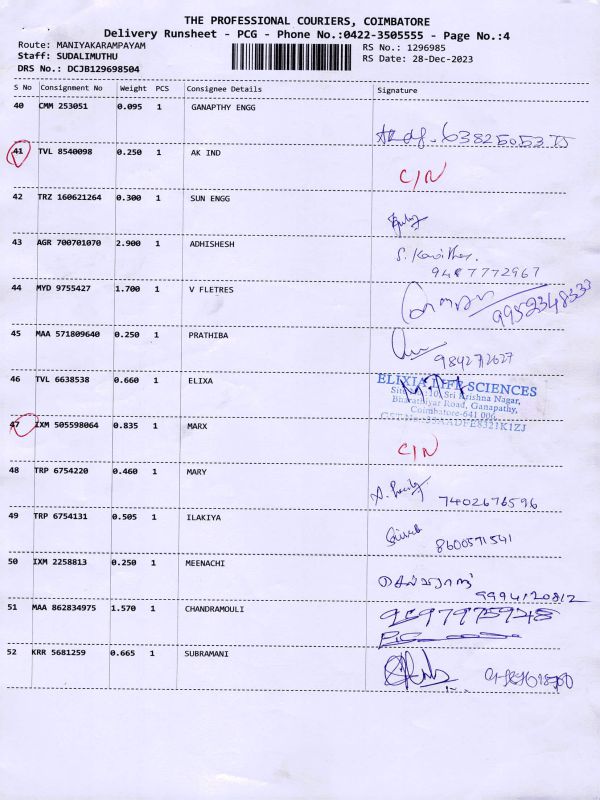 THE PROFESSIONAL COURIERS, COIMBATORE
Delivery Runsheet - PCG - Phone No.:0422-3505555 - Page No.:4
Route: MANIYAKARAMPAYAM RS No.: 1296985
Staff: SUDALIMUTHU RS Date: 28-Dec-2023
DRS No.: DCJB129698504
S No Consignment No Weight PCS Consignee Details Signature
40 CMM 253051 0.095 1 GANAPTHY ENGG
41 TVL 8540098 0.250 1 AK IND
C/N
42 TRZ 160621264 0.300 1 SUN ENGG
43 AGR 700701070 2.900 1 ADHISHESH
9487772967
44 MYD 9755427 1.700 1 V FLETRES
9952348333
45 MAA 571809640 0.250 1 PRATHIBA
984272627
46 TVL 6638538 0.660 1 ELIXA
ELIXIA LIFE SCIENCES
Sri Krishna Nagar,
Bharathiyar Road, Ganapathy,
Coimbatore-641 006.
47 IXM 505598064 0.835 1 MARX
C/N
48 TRP 6754220 0.460 1 MARY
7402676596
49 TRP 6754131 0.505 1 ILAKIYA
8600571541
50 IXM 2258813 0.250 1 MEENACHI
9994120812
51 MAA 862834975 1.570 1 CHANDRAMOULI
52 KRR 5681259 0.665 1 SUBRAMANI